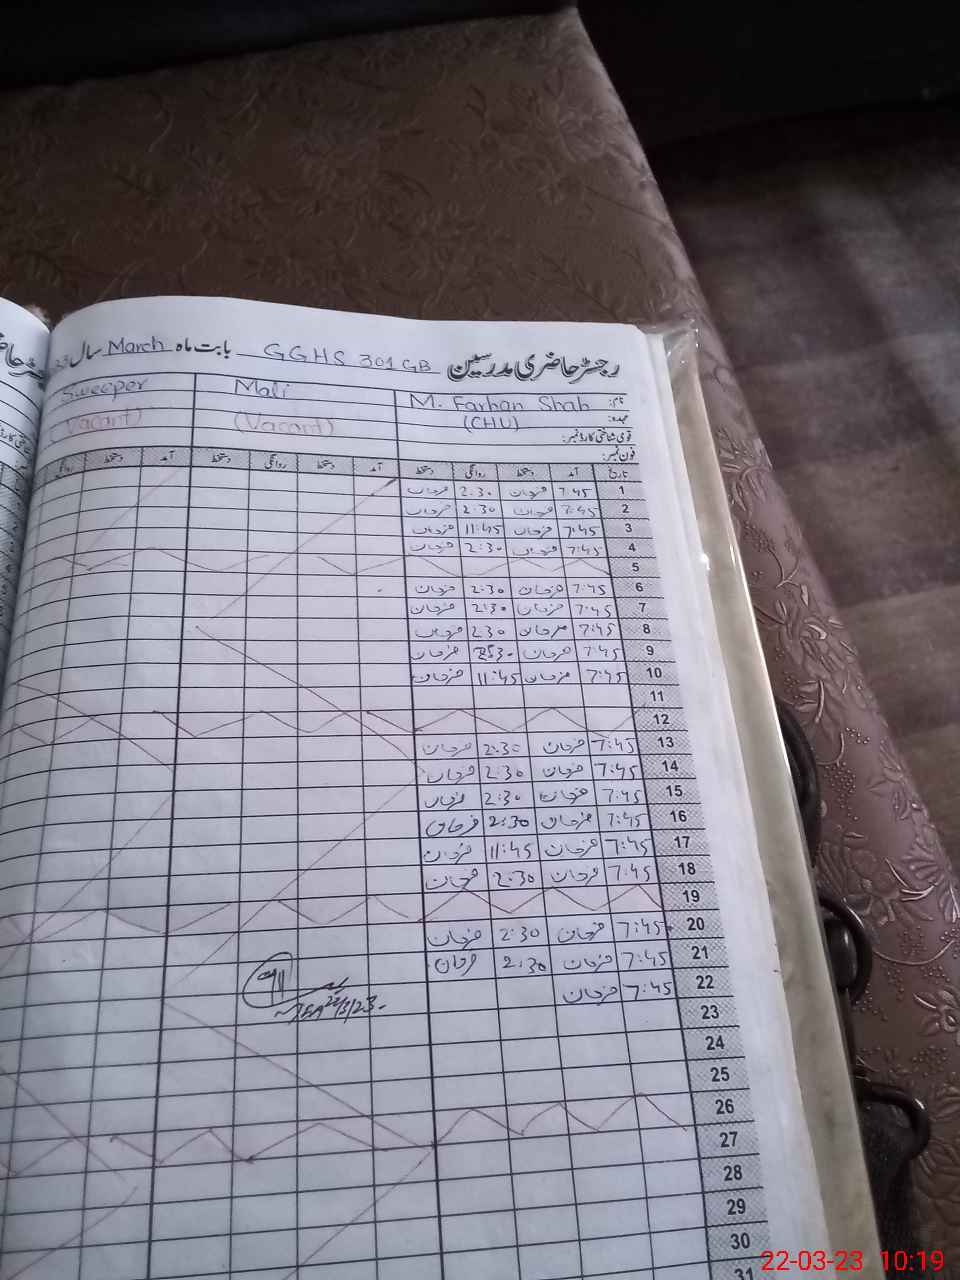 رجسٹر حاضری مدرسین GGHS 301 GB بابت ماہ March سال 23
نام: M. Farhan Shah Mali Sweeper
عہدہ: (CHU) (Vacant) (Vacant)
قومی شناختی کارڈ نمبر:
فون نمبر:
تاریخ آمد دستخط روانگی دستخط آمد دستخط روانگی دستخط آمد دستخط روانگی
1 7:45 فرحان 2:30 فرحان
2 7:45 فرحان 2:30 فرحان
3 7:45 فرحان 11:45 فرحان
4 7:45 فرحان 2:30 فرحان
5
6 7:45 فرحان 2:30 فرحان
7 7:45 فرحان 2:30 فرحان
8 7:45 فرحان 2:30 فرحان
9 7:45 فرحان فرحان
10 7:45 فرحان 11:45 فرحان
11
12
13 7:45 فرحان 2:30 فرحان
14 7:45 فرحان 2:30 فرحان
15 7:45 فرحان 2:30 فرحان
16 7:45 فرحان 2:30 فرحان
17 7:45 فرحان 11:45 فرحان
18 7:45 فرحان 2:30 فرحان
19
20 7:45 فرحان 2:30 فرحان
21 7:45 فرحان 2:30 فرحان
22 7:45 فرحان
22/3/23
23
24
25
26
27
28
29
30
31
22-03-23 10:19